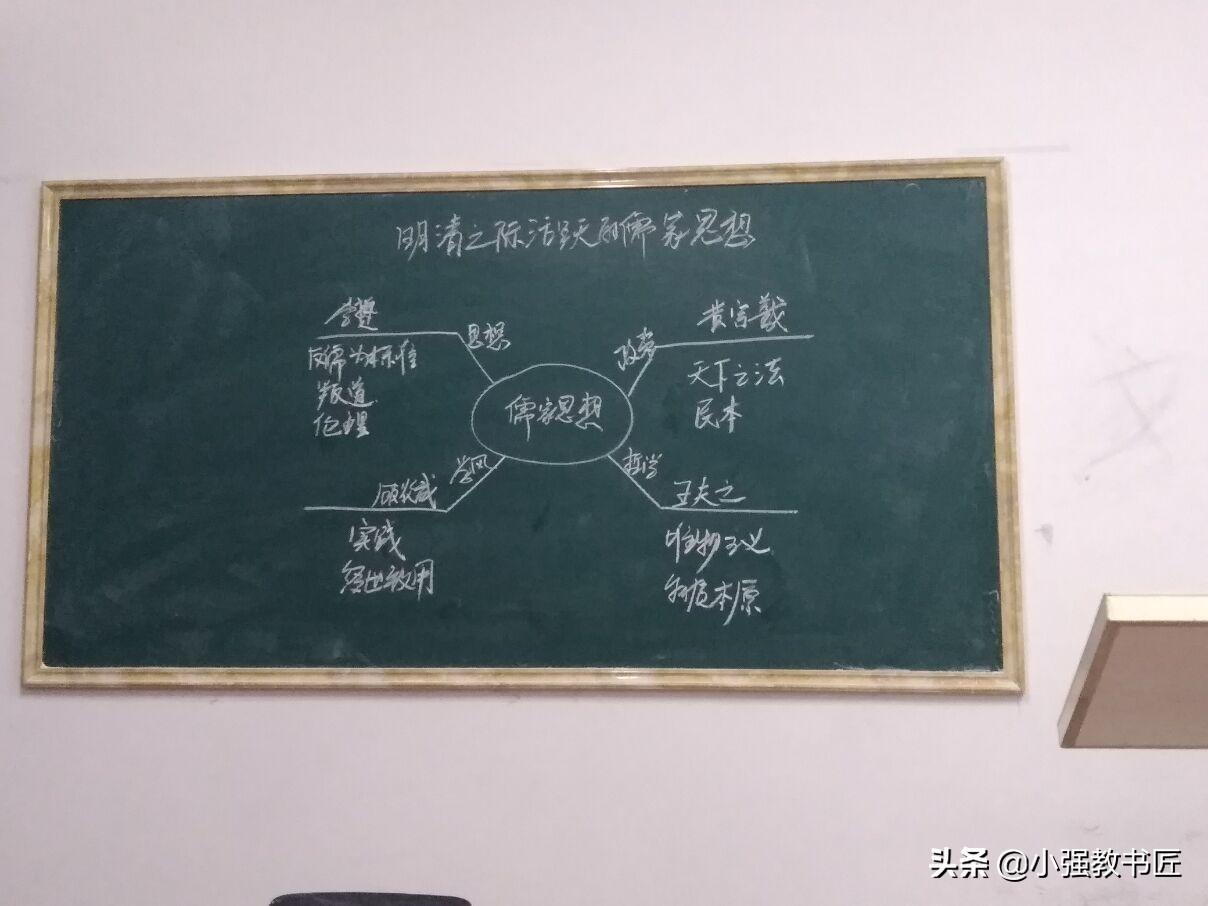 明清之际活跃的儒家思想
李贽
思想
反儒为标准
叛道
伦理
黄宗羲
政
天下之法
民本
儒家思想
学风
顾炎武
实践
经世致用
哲学
王夫之
唯物主义
物质本原
头条 @小强教书匠